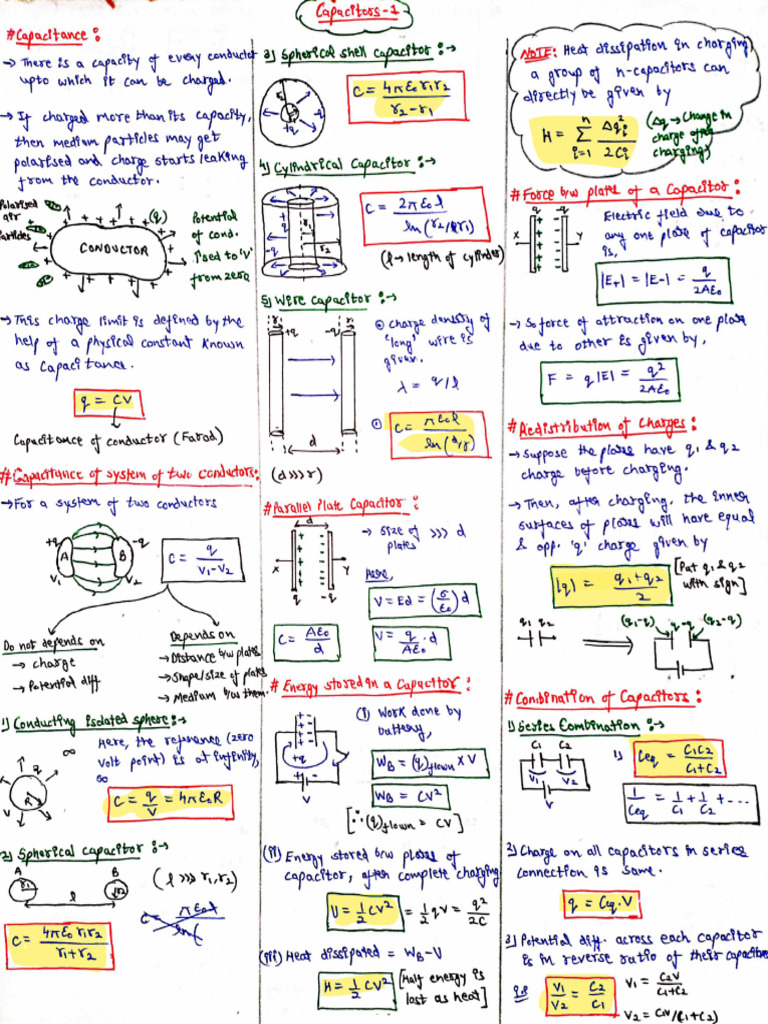 Capacitors-1
# Capacitance :
→ There is a capacity of every conductor
upto which it can be charged.
→ If charged more than its capacity,
then medium particles may get
polarised and charge starts leaking
from the conductor.
Polarised
air
Particles
(q)
CONDUCTOR
Potential
of cond.
ised to 'V'
from zero
→ This charge limit is defined by the
help of a physical constant known
as capacitance.
q = CV
Capacitance of conductor (Farad)
# Capacitance of system of two conductors:
→ For a system of two conductors
+q A B -q
V1 V2
C = q/(V1-V2)
Do not depends on
→ charge
→ Potential diff
Depends on
→ Distance b/w plates
→ Shape/size of plates
→ Medium b/w them.
1) Conducting isolated sphere :→
∞
q
R
V
Here, the reference (zero
volt point) is at infinity,
∞
C = q/V = 4πε0R
2) Spherical capacitor :→
A B
r1 r2
l
(l >>> r1, r2)
C = 4πε0r1r2/(r1+r2)
3) Spherical shell capacitor :→
r2
r1
+q
-q
C = 4πε0r1r2/(r2-r1)
4) Cylindrical Capacitor :→
q
-q
r1
r2
C = 2πε0l/ln(r2/r1)
(l → length of cylinder)
5) Wire Capacitor :→
r +q -q r
d
(d>>>r)
⊙ charge density of
'long' wire is
given.
λ = q/l
C = πε0l/ln(d/r)
# Parallel Plate Capacitor :
d
X Y
q -q
→ size of >>> d
plates
Here,
V = Ed = (σ/ε0)d
C = Aε0/d
V = q/Aε0 . d
# Energy stored in a Capacitor :
+q
V
(i) Work done by
battery,
WB = (q)flown × V
WB = CV²
[∵ (q)flown = CV]
(ii) Energy stored b/w plates of
capacitor, after complete charging
U = 1/2 CV² = 1/2 qV = q²/2C
(iii) Heat dissipated = WB - U
H = 1/2 CV²
[Half energy is
lost as heat]
NOTE: Heat dissipation in charging
a group of n-capacitors can
directly be given by
H = Σ(i=1 to n) Δqi²/2Ci
(Δq → Change in
charge after
charging)
# Force b/w plates of a Capacitor :
q -q
X Y
Electric field due to
any one plate of capacitor
is,
|E+| = |E-| = q/2Aε0
→ So force of attraction on one plate
due to other is given by,
F = q|E| = q²/2Aε0
# Redistribution of Charges :
→ Suppose the plates have q1 & q2
charge before charging.
→ Then, after charging, the inner
surfaces of plates will have equal
& opp. 'q' charge given by
|q| = (q1+q2)/2
[Put q1 & q2
with sign]
q1 q2
(q1-q) q -q (q2-q)
# Combination of Capacitors :
1) Series Combination :→
C1 C2
V1 V2
V
1) Ceq = C1C2/(C1+C2)
1/Ceq = 1/C1 + 1/C2 + ...
2) Charge on all capacitors in series
connection is same.
q = Ceq.V
3) Potential diff. across each capacitor
is in reverse ratio of their capacitance
V1/V2 = C2/C1
V1 = C2V/(C1+C2)
V2 = C1V/(C1+C2)